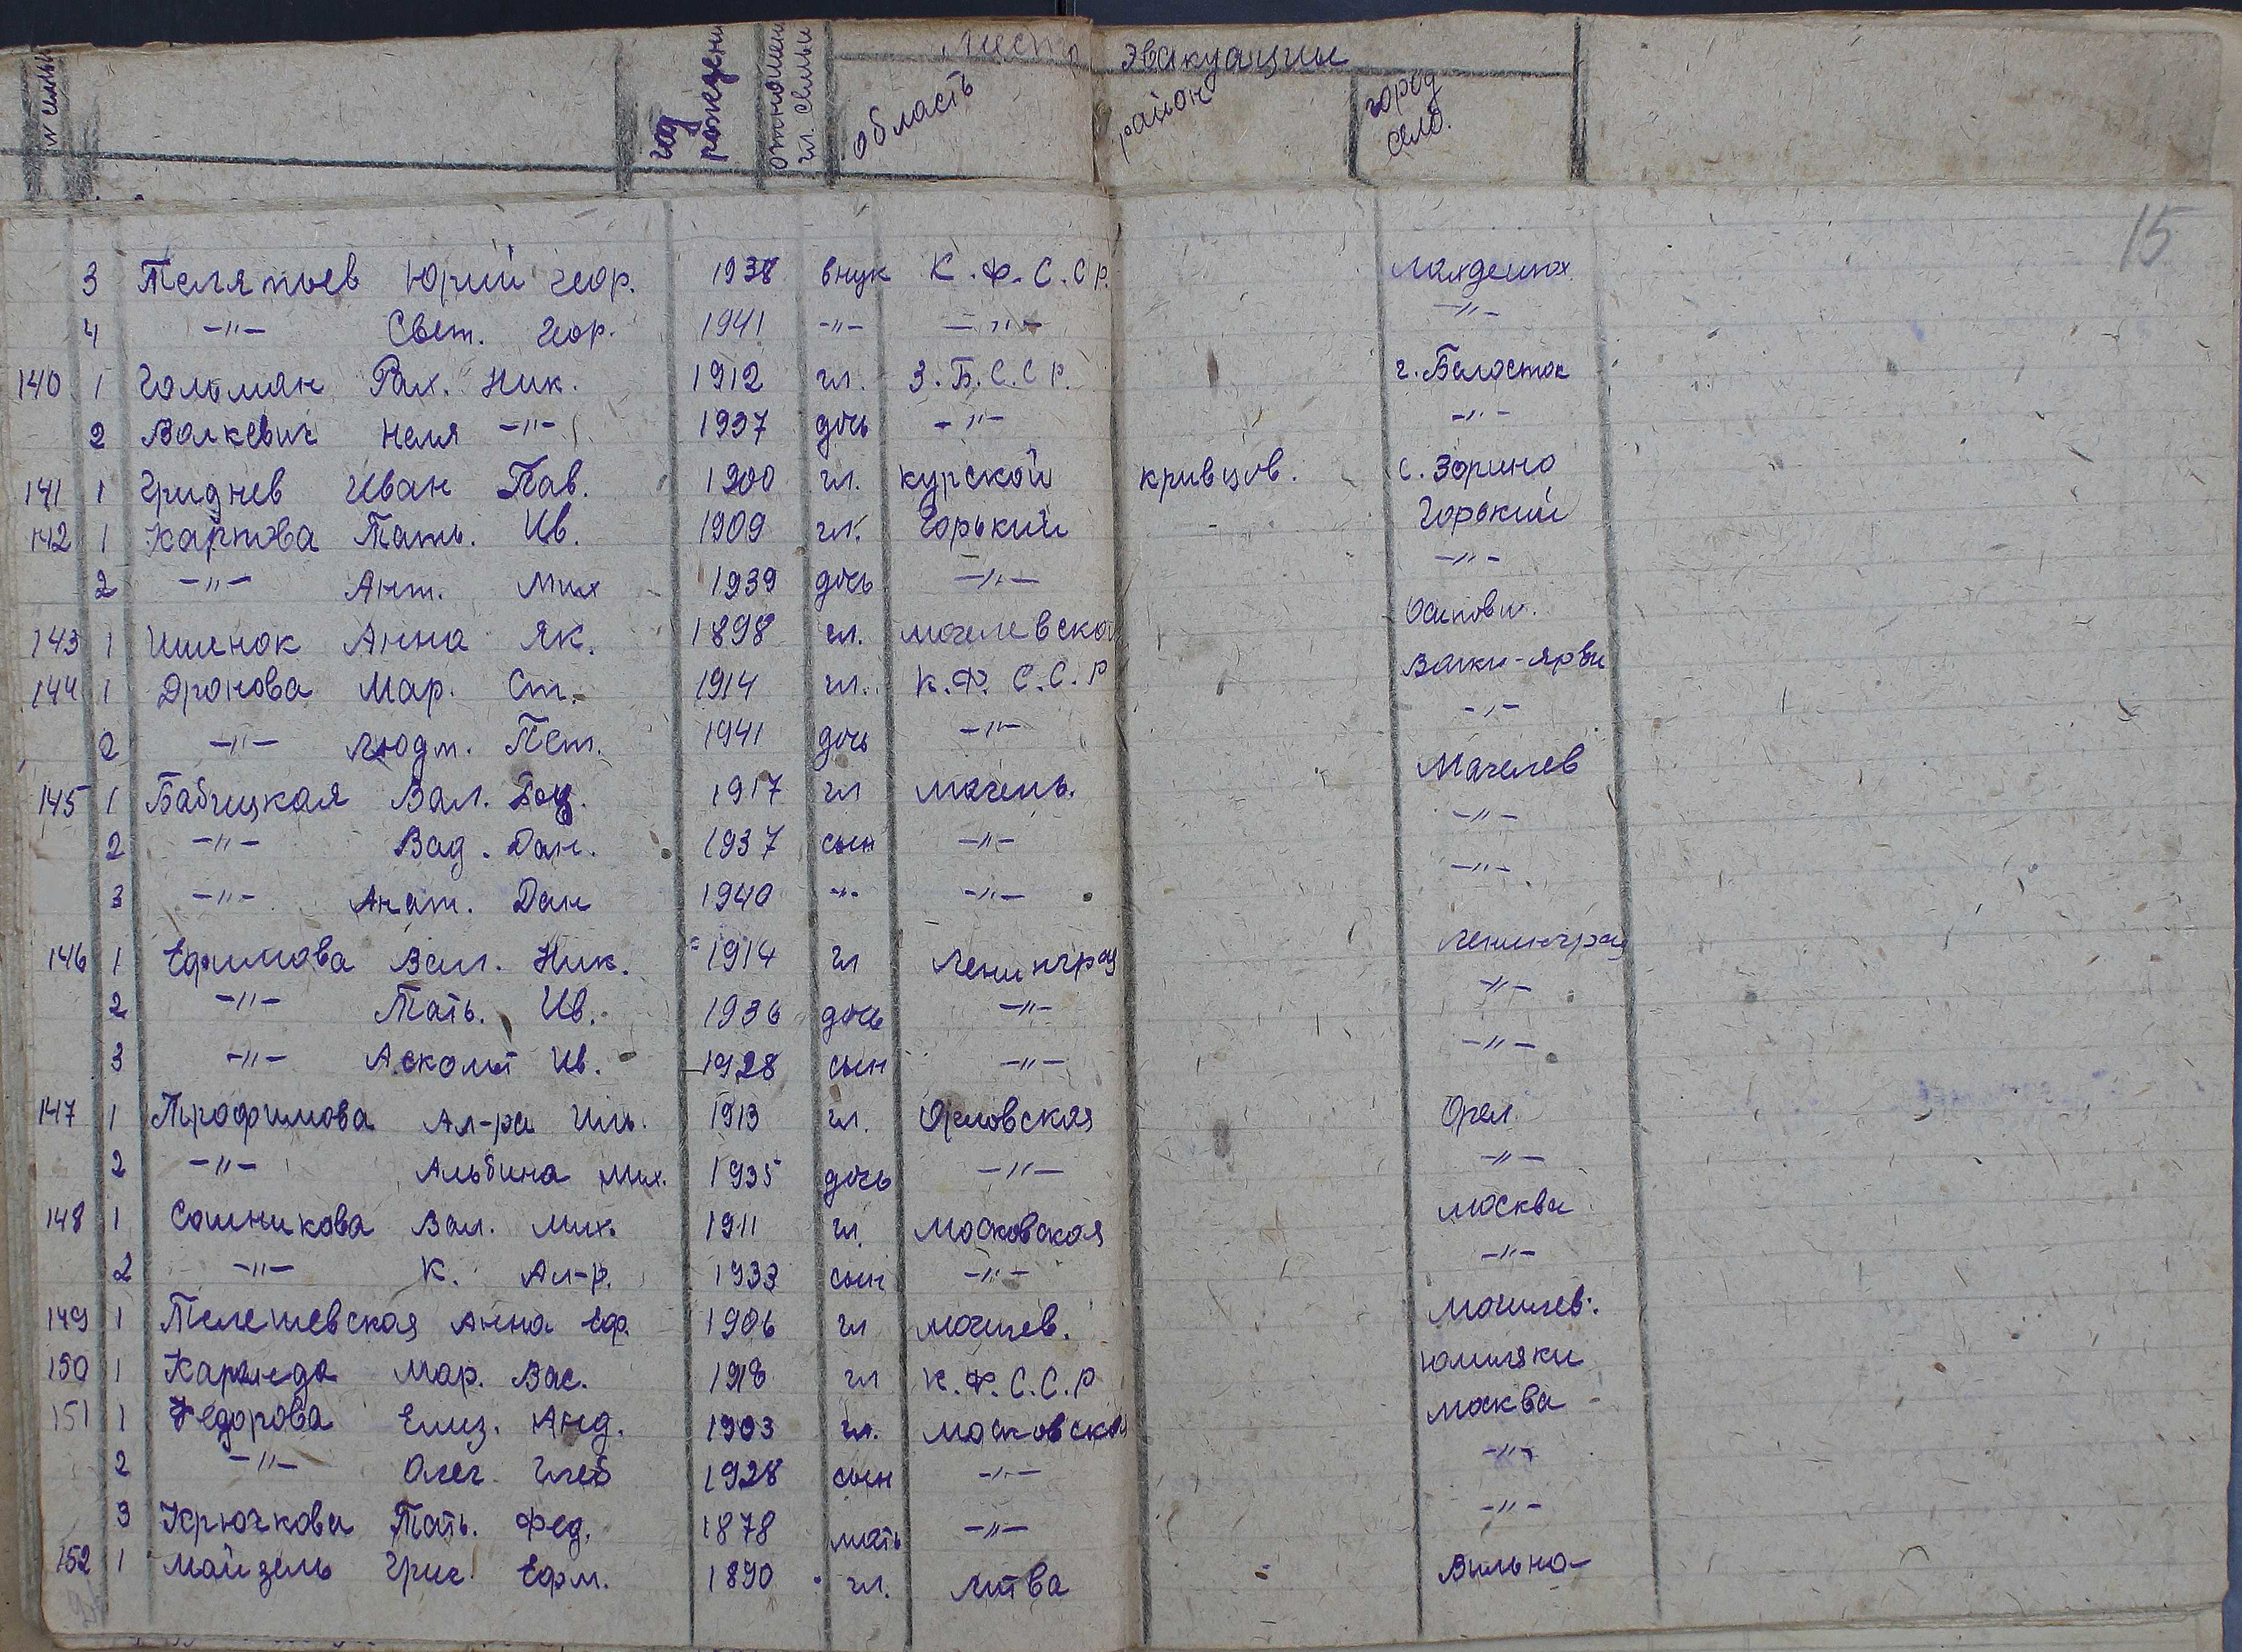 № семьи год рождени отношен. гл. семьи место эвакуации
область район город село.
15
3 Телятьев Юрий Геор. 1938 внук К.Ф.С.С.Р.
4 -"- Свет. Геор. 1941 -"- -"- -"-
140 1 Гольман Рах. Ник. 1912 гл. З.Б.С.С.Р. г. Белосток
2 Валкевич Неля -"- 1937 дочь -"- -"-
141 1 Гриднев Иван Пав. 1900 гл. Курской Кривцов. с. Зорино
142 1 Карпова Тать. Ив. 1909 гл. Горький Горький
2 -"- Ант. Мих 1939 дочь -"- -"-
143 1 Анна Як. 1898 гл. Могилевской Осипови.
144 1 Дронова Мар. Ст. 1914 гл. К.Ф.С.С.Р Вялки-ярви
2 -"- Людм. Пет. 1941 дочь -"- -"-
145 1 Бабицкая Вал. 1917 гл Могель. Могелев
2 -"- Вад. Дан. 1937 сын -"- -"-
3 -"- Анат. Дан 1940 -"- -"- -"-
146 1 Ефимова Вал. Ник. 1914 гл Ленинград Ленинград
2 -"- Тать. Ив. 1936 дочь -"- -"-
3 -"- Асколт Ив. 1928 сын -"- -"-
147 1 Трофимова Ал-ра Иль. 1913 гл. Орловская Орел
2 -"- Альбина Мих. 1935 дочь -"- -"-
148 1 Сошникова Вал. Мих. 1911 гл. Московская Москва
2 -"- К. Ал-р. 1933 сын -"- -"-
149 1 Телешевская Анна Еф. 1906 гл Могилев. Могилев.
150 1 Мар. Вас. 1918 гл К.Ф.С.С.Р
151 1 Федорова Елиз. Анд. 1903 гл. Московская Москва
2 -"- Олег Глеб 1928 сын -"- -"-
3 Крючкова Тать. Фед. 1878 мать -"- -"-
152 1 Майзель Григ. Ефм. 1890 гл. Литва Вильна